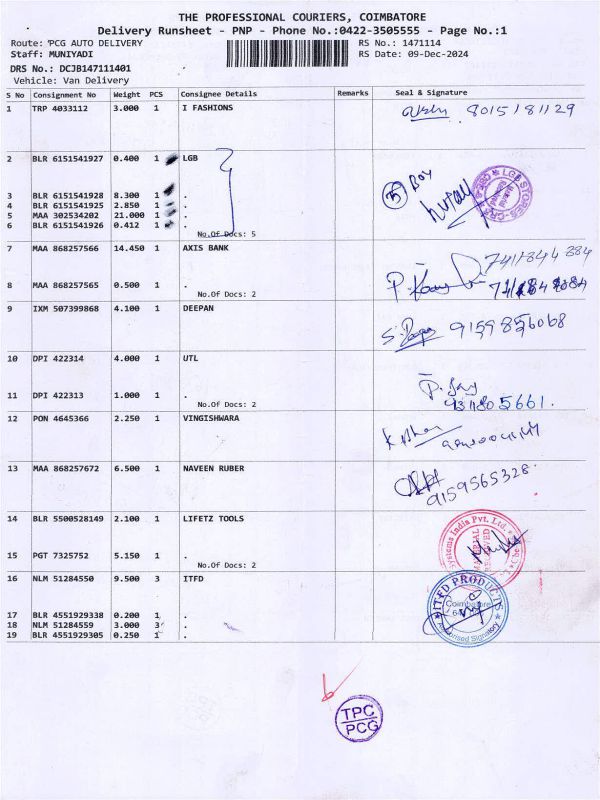 THE PROFESSIONAL COURIERS, COIMBATORE
Delivery Runsheet - PNP - Phone No.:0422-3505555 - Page No.:1
Route: PCG AUTO DELIVERY RS No.: 1471114
Staff: MUNIYADI RS Date: 09-Dec-2024
DRS No.: DCJB147111401
Vehicle: Van Delivery
S No Consignment No Weight PCS Consignee Details Remarks Seal & Signature
1 TRP 4033112 3.000 1 I FASHIONS 8015181129
2 BLR 6151541927 0.400 1 LGB
3 BLR 6151541928 8.300 1 . 5 Boy
4 BLR 6151541925 2.850 1 . LGB STORES-CRA
5 MAA 302534202 21.000 1 .
6 BLR 6151541926 0.412 1 .
No.Of Docs: 5
7 MAA 868257566 14.450 1 AXIS BANK 7411844884
8 MAA 868257565 0.500 1 .
No.Of Docs: 2
9 IXM 507399868 4.100 1 DEEPAN 9159856068
10 DPI 422314 4.000 1 UTL
11 DPI 422313 1.000 1 . 5661.
No.Of Docs: 2
12 PON 4645366 2.250 1 VINGISHWARA
13 MAA 868257672 6.500 1 NAVEEN RUBER 9159565328
14 BLR 5500528149 2.100 1 LIFETZ TOOLS ystems India Pvt. Ltd.
15 PGT 7325752 5.150 1 .
No.Of Docs: 2
16 NLM 51284550 9.500 3 ITFD ITFD PRODUCTS
17 BLR 4551929338 0.200 1 . Coimbatore
18 NLM 51284559 3.000 3 . Authorised Signatory
19 BLR 4551929305 0.250 1 .
TPC
PCG